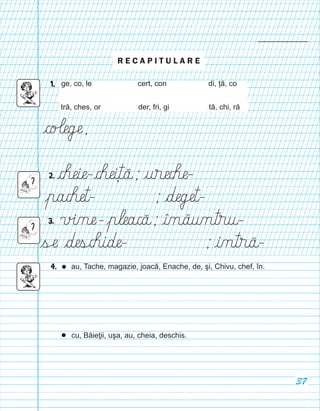 RECAPITULARE
1. ge, co, le cert, con di, ță, co
tră, ches, or der, fri, gi tă, chi, ră
colege,
2. cheie-cheiță; ureche-
pachet- ; deget-
3. vine-pleacă; înăuntru-
se deschide- ; intră-
4. • au, Tache, magazie, joacă, Enache, de, și, Chivu, chef, în.
• cu, Băieții, ușa, au, cheia, deschis.
37